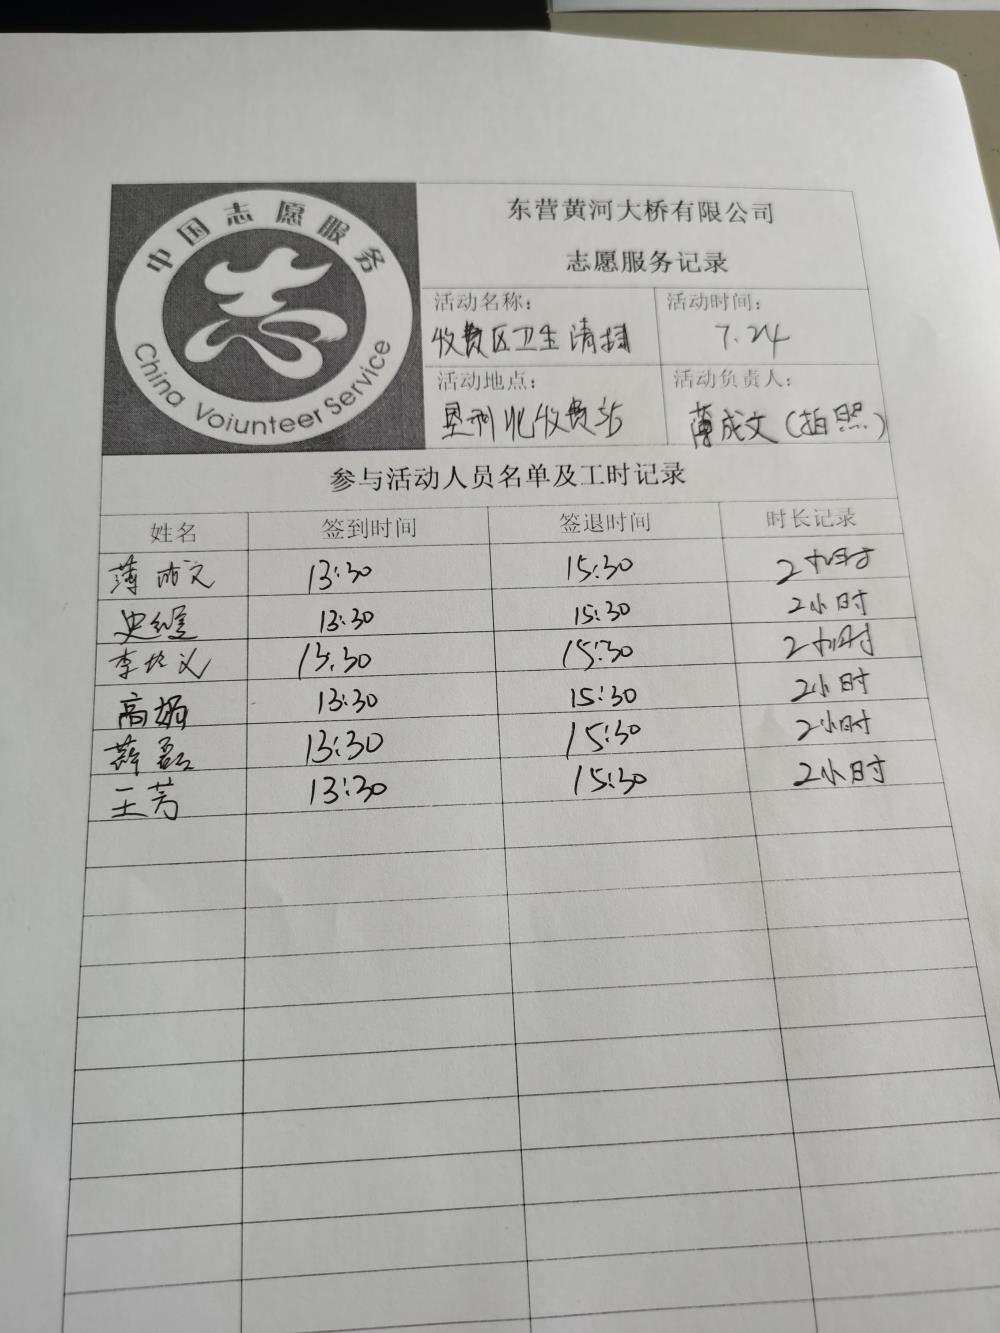 中国志愿服务
志
China Voiunteer Service
东营黄河大桥有限公司
志愿服务记录
活动名称：
收费区卫生清扫
活动时间：
7.24
活动地点：
垦利北收费站
活动负责人：
薄成文（拍照）
参与活动人员名单及工时记录
姓名 签到时间 签退时间 时长记录
薄成文 13:30 15:30 2小时
史 13:30 15:30 2小时
李 13:30 15:30 2小时
高娟 13:30 15:30 2小时
薛磊 13:30 15:30 2小时
王芳 13:30 15:30 2小时